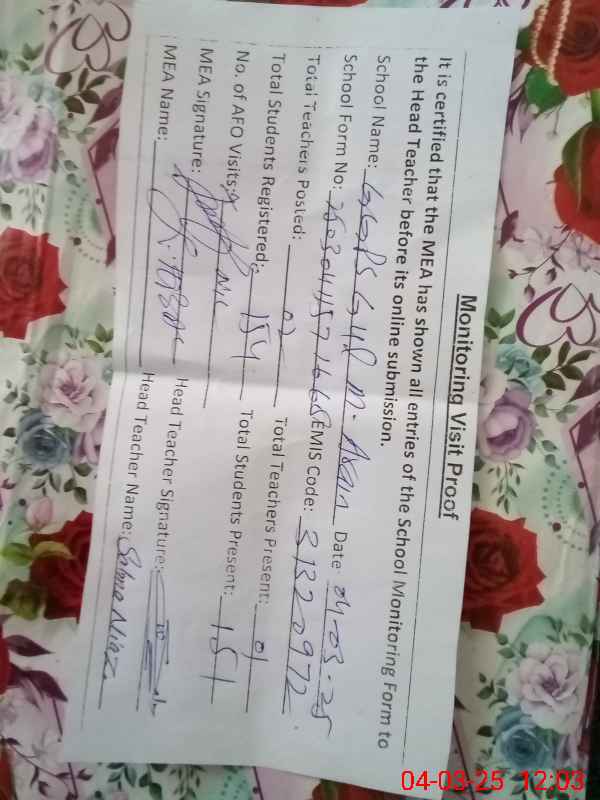 Monitoring Visit Proof
It is certified that the MEA has shown all entries of the School Monitoring Form to
the Head Teacher before its online submission.
School Name: GGPS M. Date: 04-03-25
School Form No: EMIS Code: 31320972
Total Teachers Posted: 02 Total Teachers Present: 01
Total Students Registered: 154 Total Students Present: 151
No. of AFO Visits: Nil
MEA Signature: Head Teacher Signature:
MEA Name: Head Teacher Name: Niaz
04-03-25 12:03